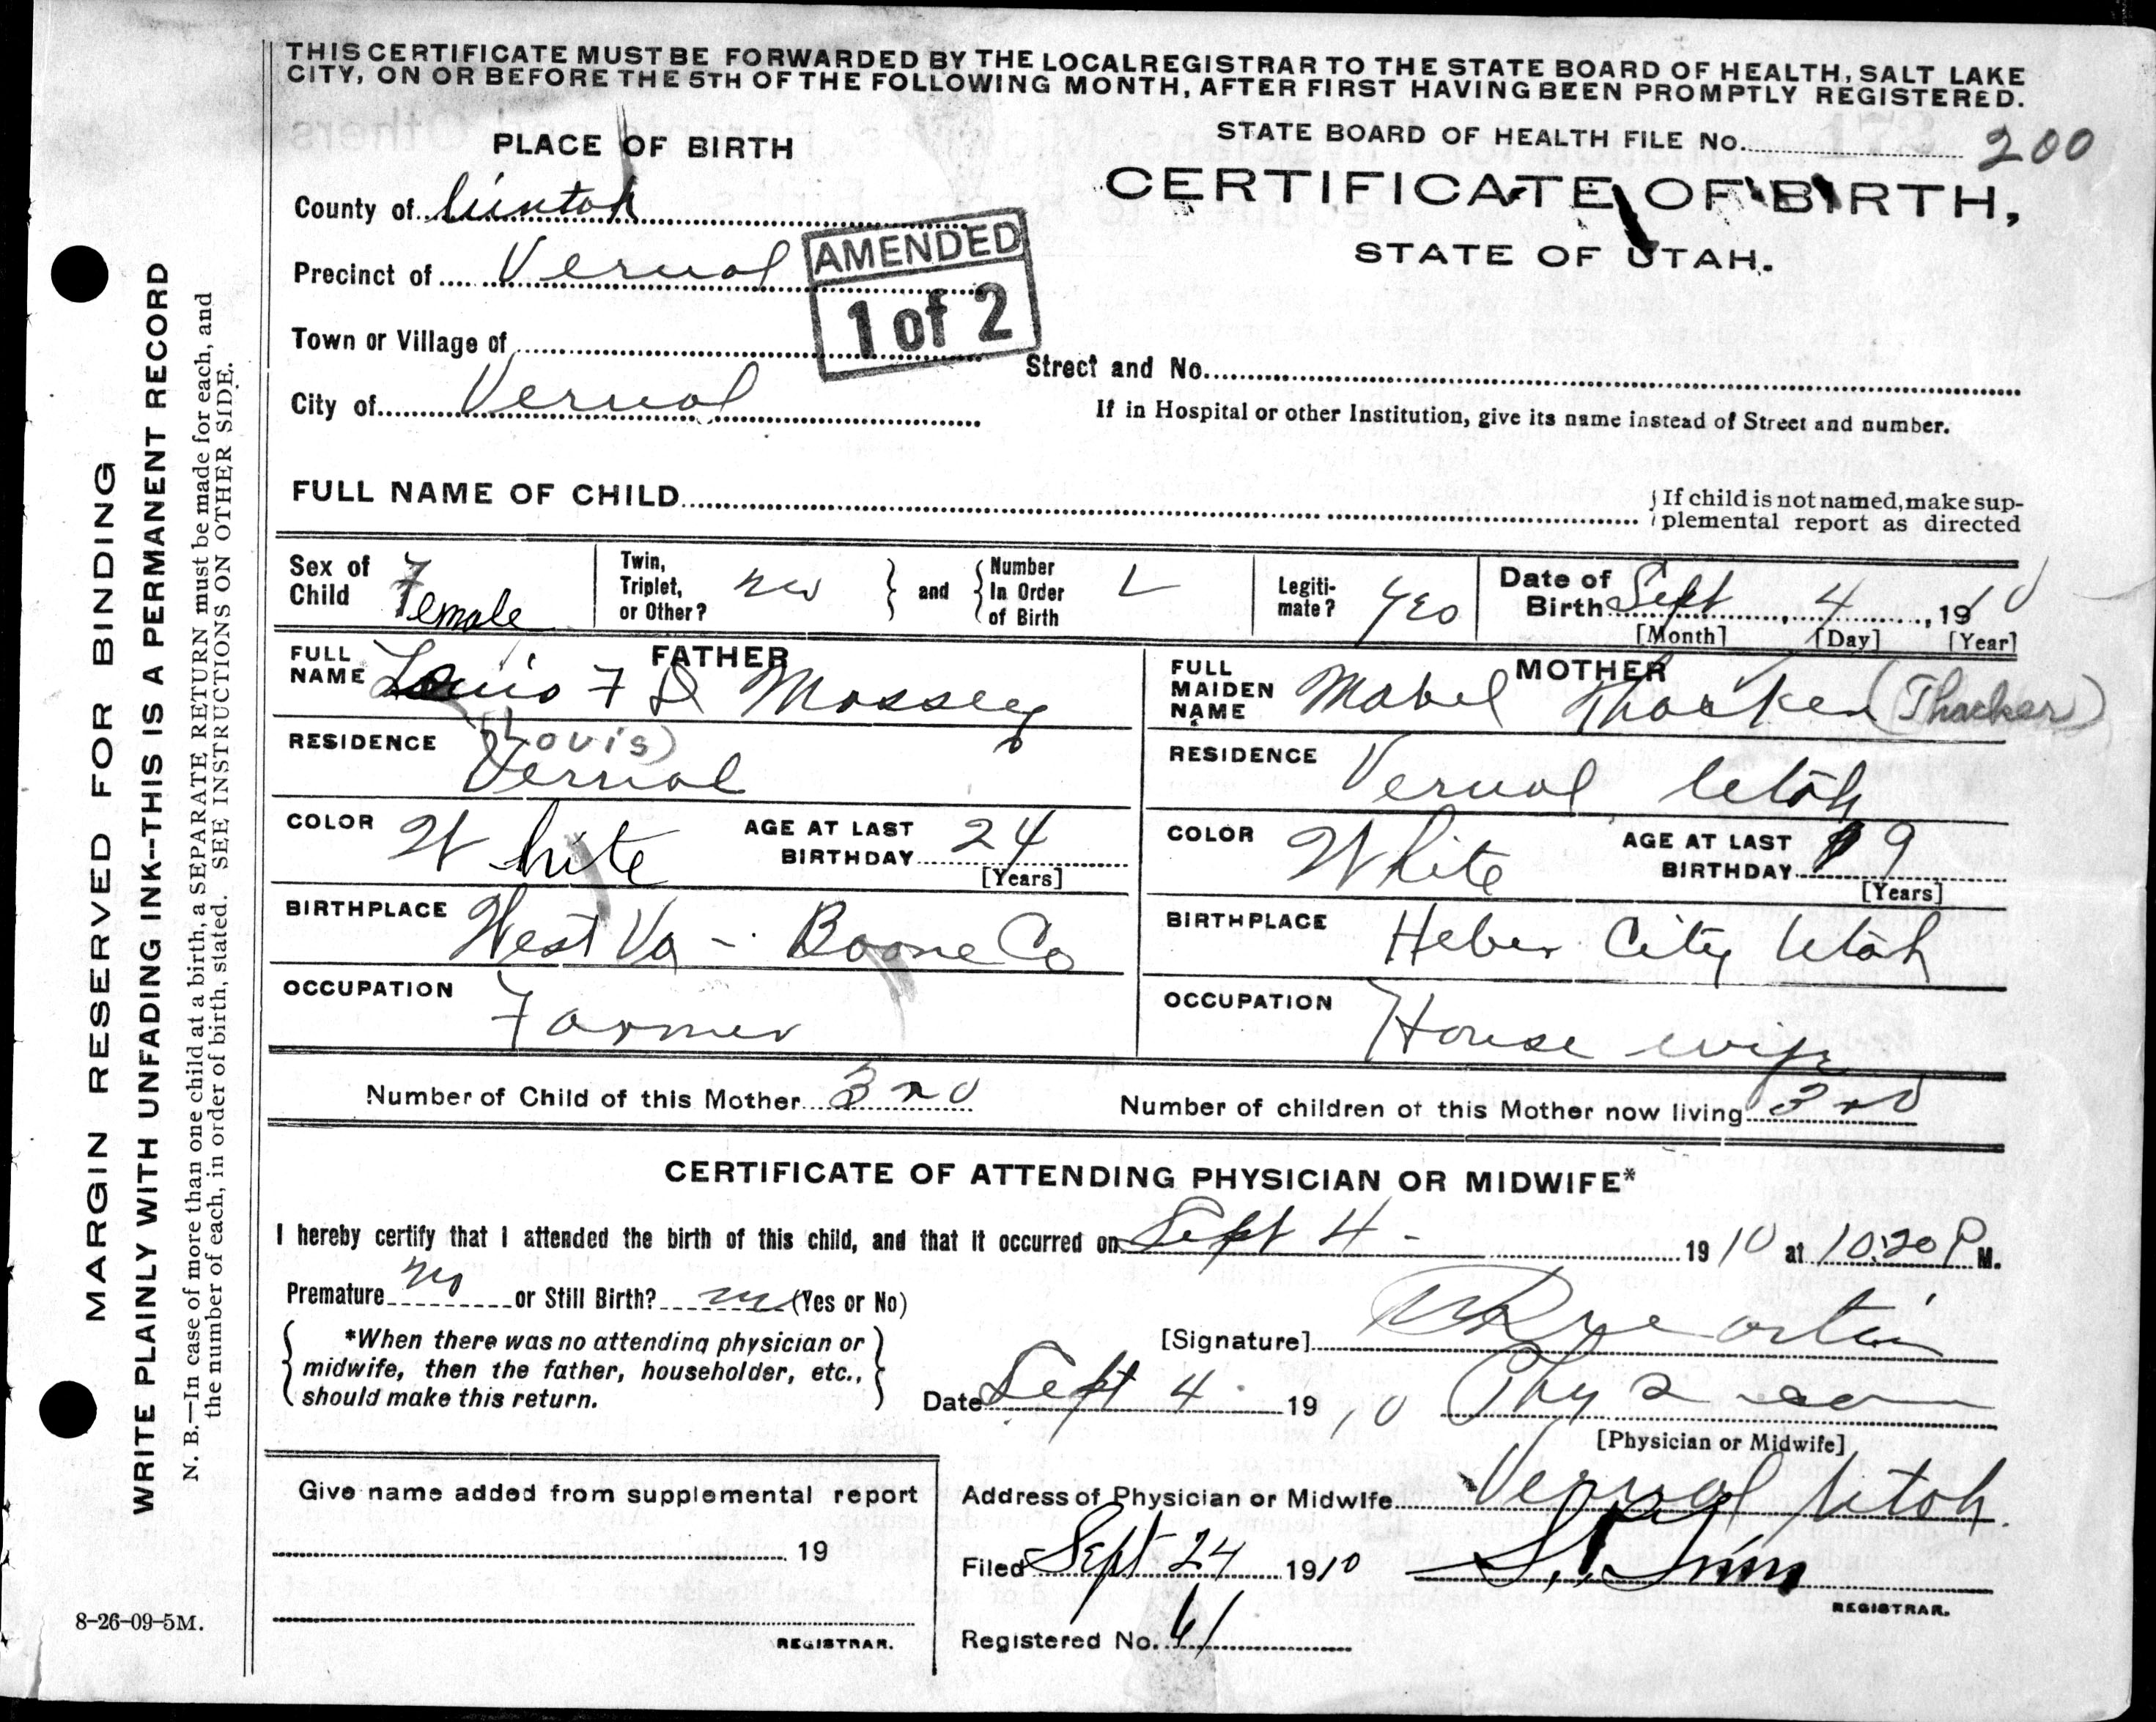 THIS CERTIFICATE MUST BE FORWARDED BY THE LOCAL REGISTRAR TO THE STATE BOARD OF HEALTH, SALT LAKE
CITY, ON OR BEFORE THE 5TH OF THE FOLLOWING MONTH, AFTER FIRST HAVING BEEN PROMPTLY REGISTERED.
PLACE OF BIRTH
STATE BOARD OF HEALTH FILE No. 200
CERTIFICATE OF BIRTH,
STATE OF UTAH.
County of Uintah
Precinct of Vernal
AMENDED
1 of 2
Town or Village of
Street and No.
City of Vernal
If in Hospital or other Institution, give its name instead of Street and number.
FULL NAME OF CHILD
If child is not named, make sup-
plemental report as directed
Sex of Child Female
Twin, Triplet, or Other? no
and
Number In Order of Birth
Legiti-mate? Yes
Date of Birth Sept 4, 1910
[Month] [Day] [Year]
FATHER
FULL NAME Louis F D Massey
(Lovis)
RESIDENCE Vernal
COLOR White AGE AT LAST BIRTHDAY 24
[Years]
BIRTHPLACE West Va - Boone Co
OCCUPATION Farmer
MOTHER
FULL MAIDEN NAME Mabel Thacker (Thacker)
RESIDENCE Vernal Utah
COLOR White AGE AT LAST BIRTHDAY 19
[Years]
BIRTHPLACE Heber City Utah
OCCUPATION House wife
Number of Child of this Mother 3rd
Number of children of this Mother now living 3rd
CERTIFICATE OF ATTENDING PHYSICIAN OR MIDWIFE*
I hereby certify that I attended the birth of this child, and that it occurred on Sept 4 - 1910 at 10:20 P M.
Premature no or Still Birth? no (Yes or No)
*When there was no attending physician or
midwife, then the father, householder, etc.,
should make this return.
[Signature]
Date Sept 4 1910 Physician
[Physician or Midwife]
Give name added from supplemental report
19
REGISTRAR.
Address of Physician or Midwife Vernal Utah.
Filed Sept 24 1910
REGISTRAR.
Registered No. 61
MARGIN RESERVED FOR BINDING
WRITE PLAINLY WITH UNFADING INK--THIS IS A PERMANENT RECORD
N. B.—In case of more than one child at a birth, a SEPARATE RETURN must be made for each, and
the number of each, in order of birth, stated. SEE INSTRUCTIONS ON OTHER SIDE.
8-26-09-5M.